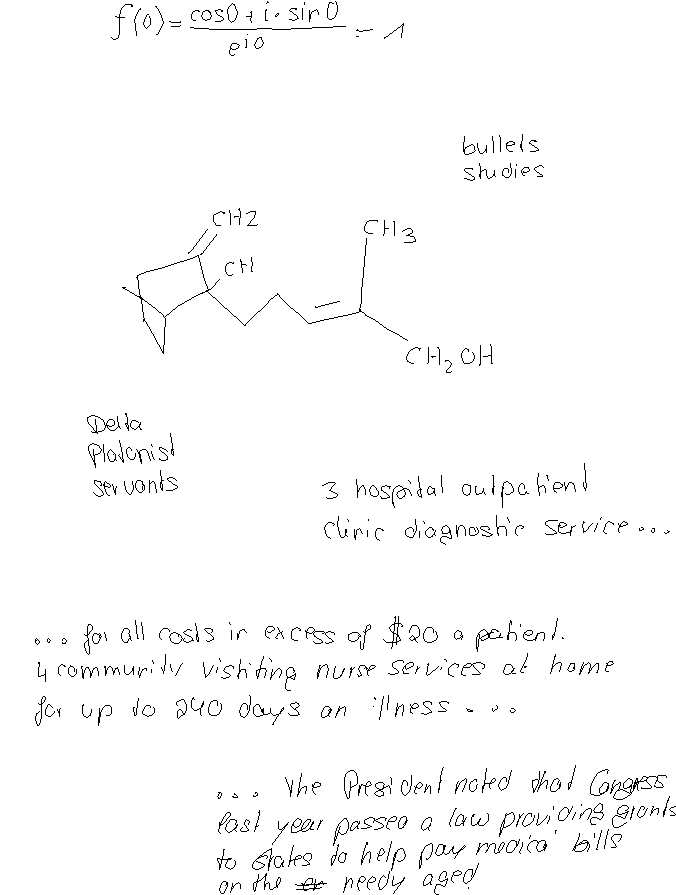 f(0) = cos0 + i · sin0 / e^i0 = 1
bullets
studies
CH2
CH
CH3
CH2OH
Delta
Platonist
servants
3 hospital outpatient
clinic diagnostic service...
... for all costs in excess of $20 a patient.
4 community vishiting nurse services at home
for up to 240 days an illness....
... the President noted that Congress
last year passed a law providing grants
to states to help pay medical bills
on the needy aged